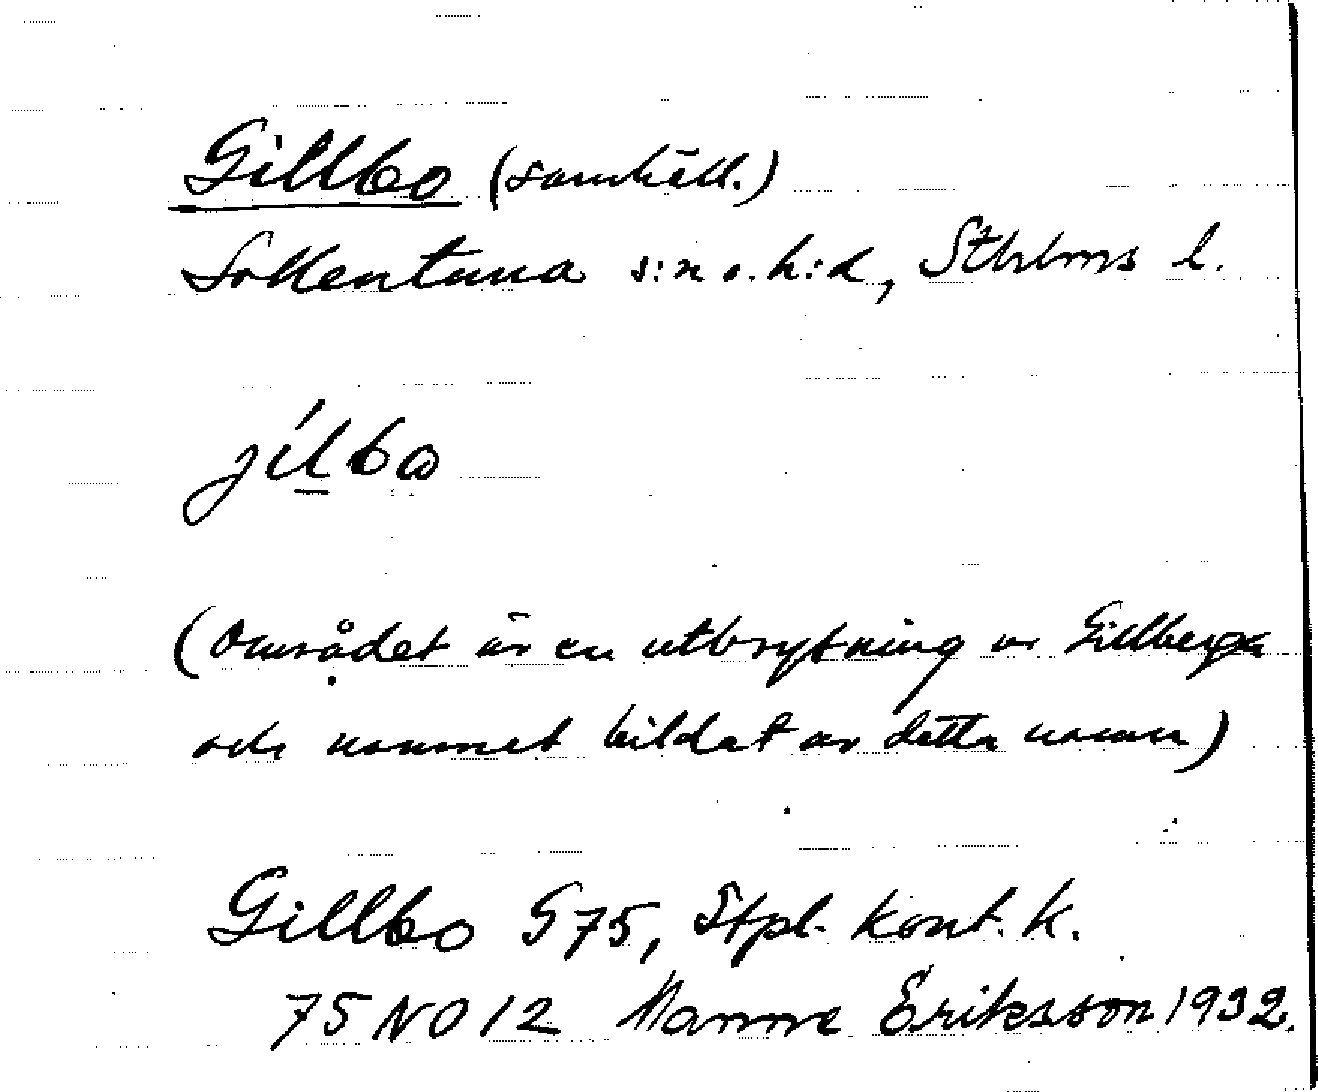 Gillbo (samhäll.)
Sollentuna s:n o. h:d, Sthlms l.
jílbo
(Området är en utbrytning av Gillberga
och namnet bildat av detta namn)
Gillbo G75, Stpl. kont. k.
75 NO 12 Manne Eriksson 1932.